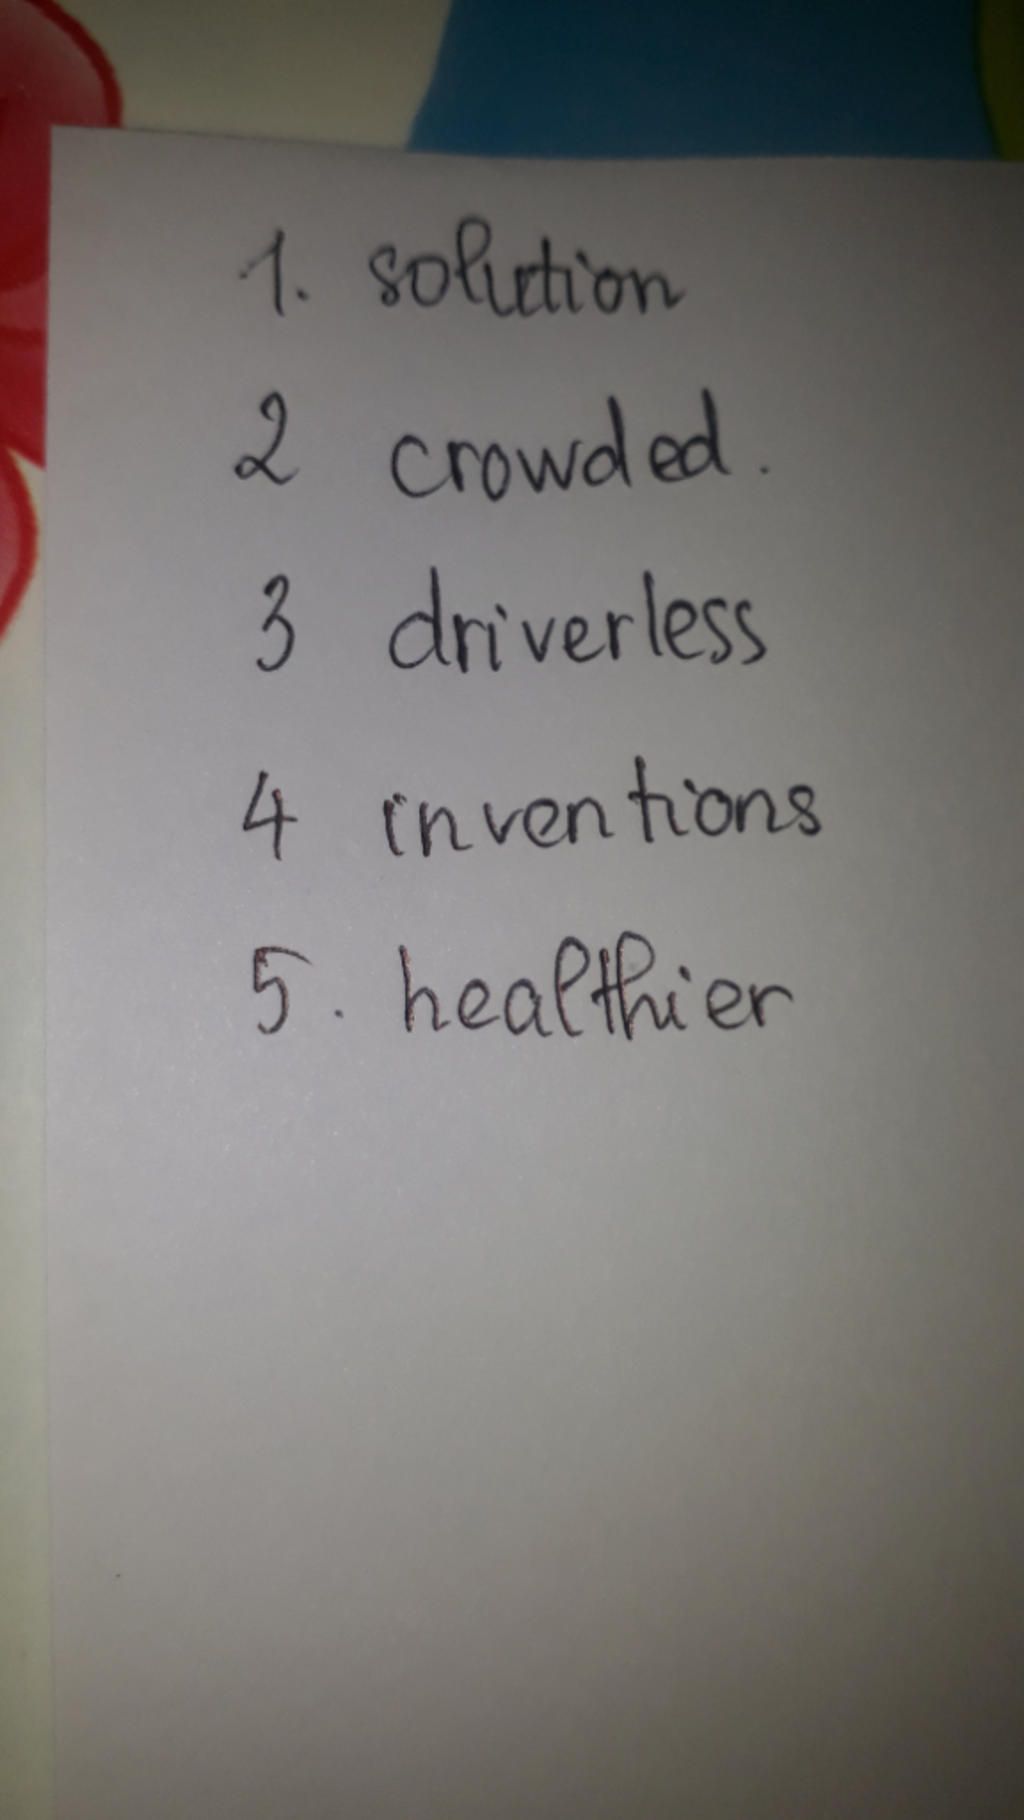 1. solution
2 crowded.
3 driverless
4 inventions
5. healthier